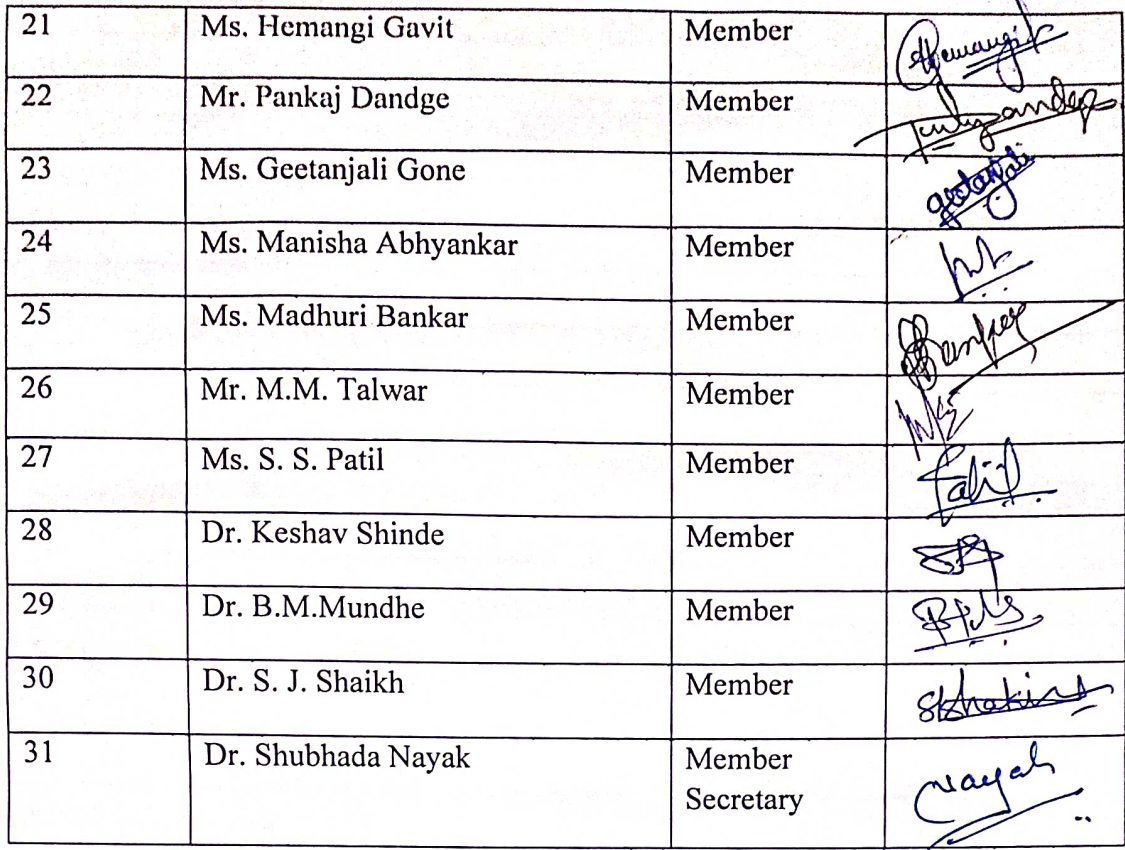 21 Ms. Hemangi Gavit Member Hemangi
22 Mr. Pankaj Dandge Member
23 Ms. Geetanjali Gone Member geetanjali
24 Ms. Manisha Abhyankar Member
25 Ms. Madhuri Bankar Member
26 Mr. M.M. Talwar Member
27 Ms. S. S. Patil Member Patil
28 Dr. Keshav Shinde Member
29 Dr. B.M.Mundhe Member
30 Dr. S. J. Shaikh Member
31 Dr. Shubhada Nayak Member Nayak
Secretary